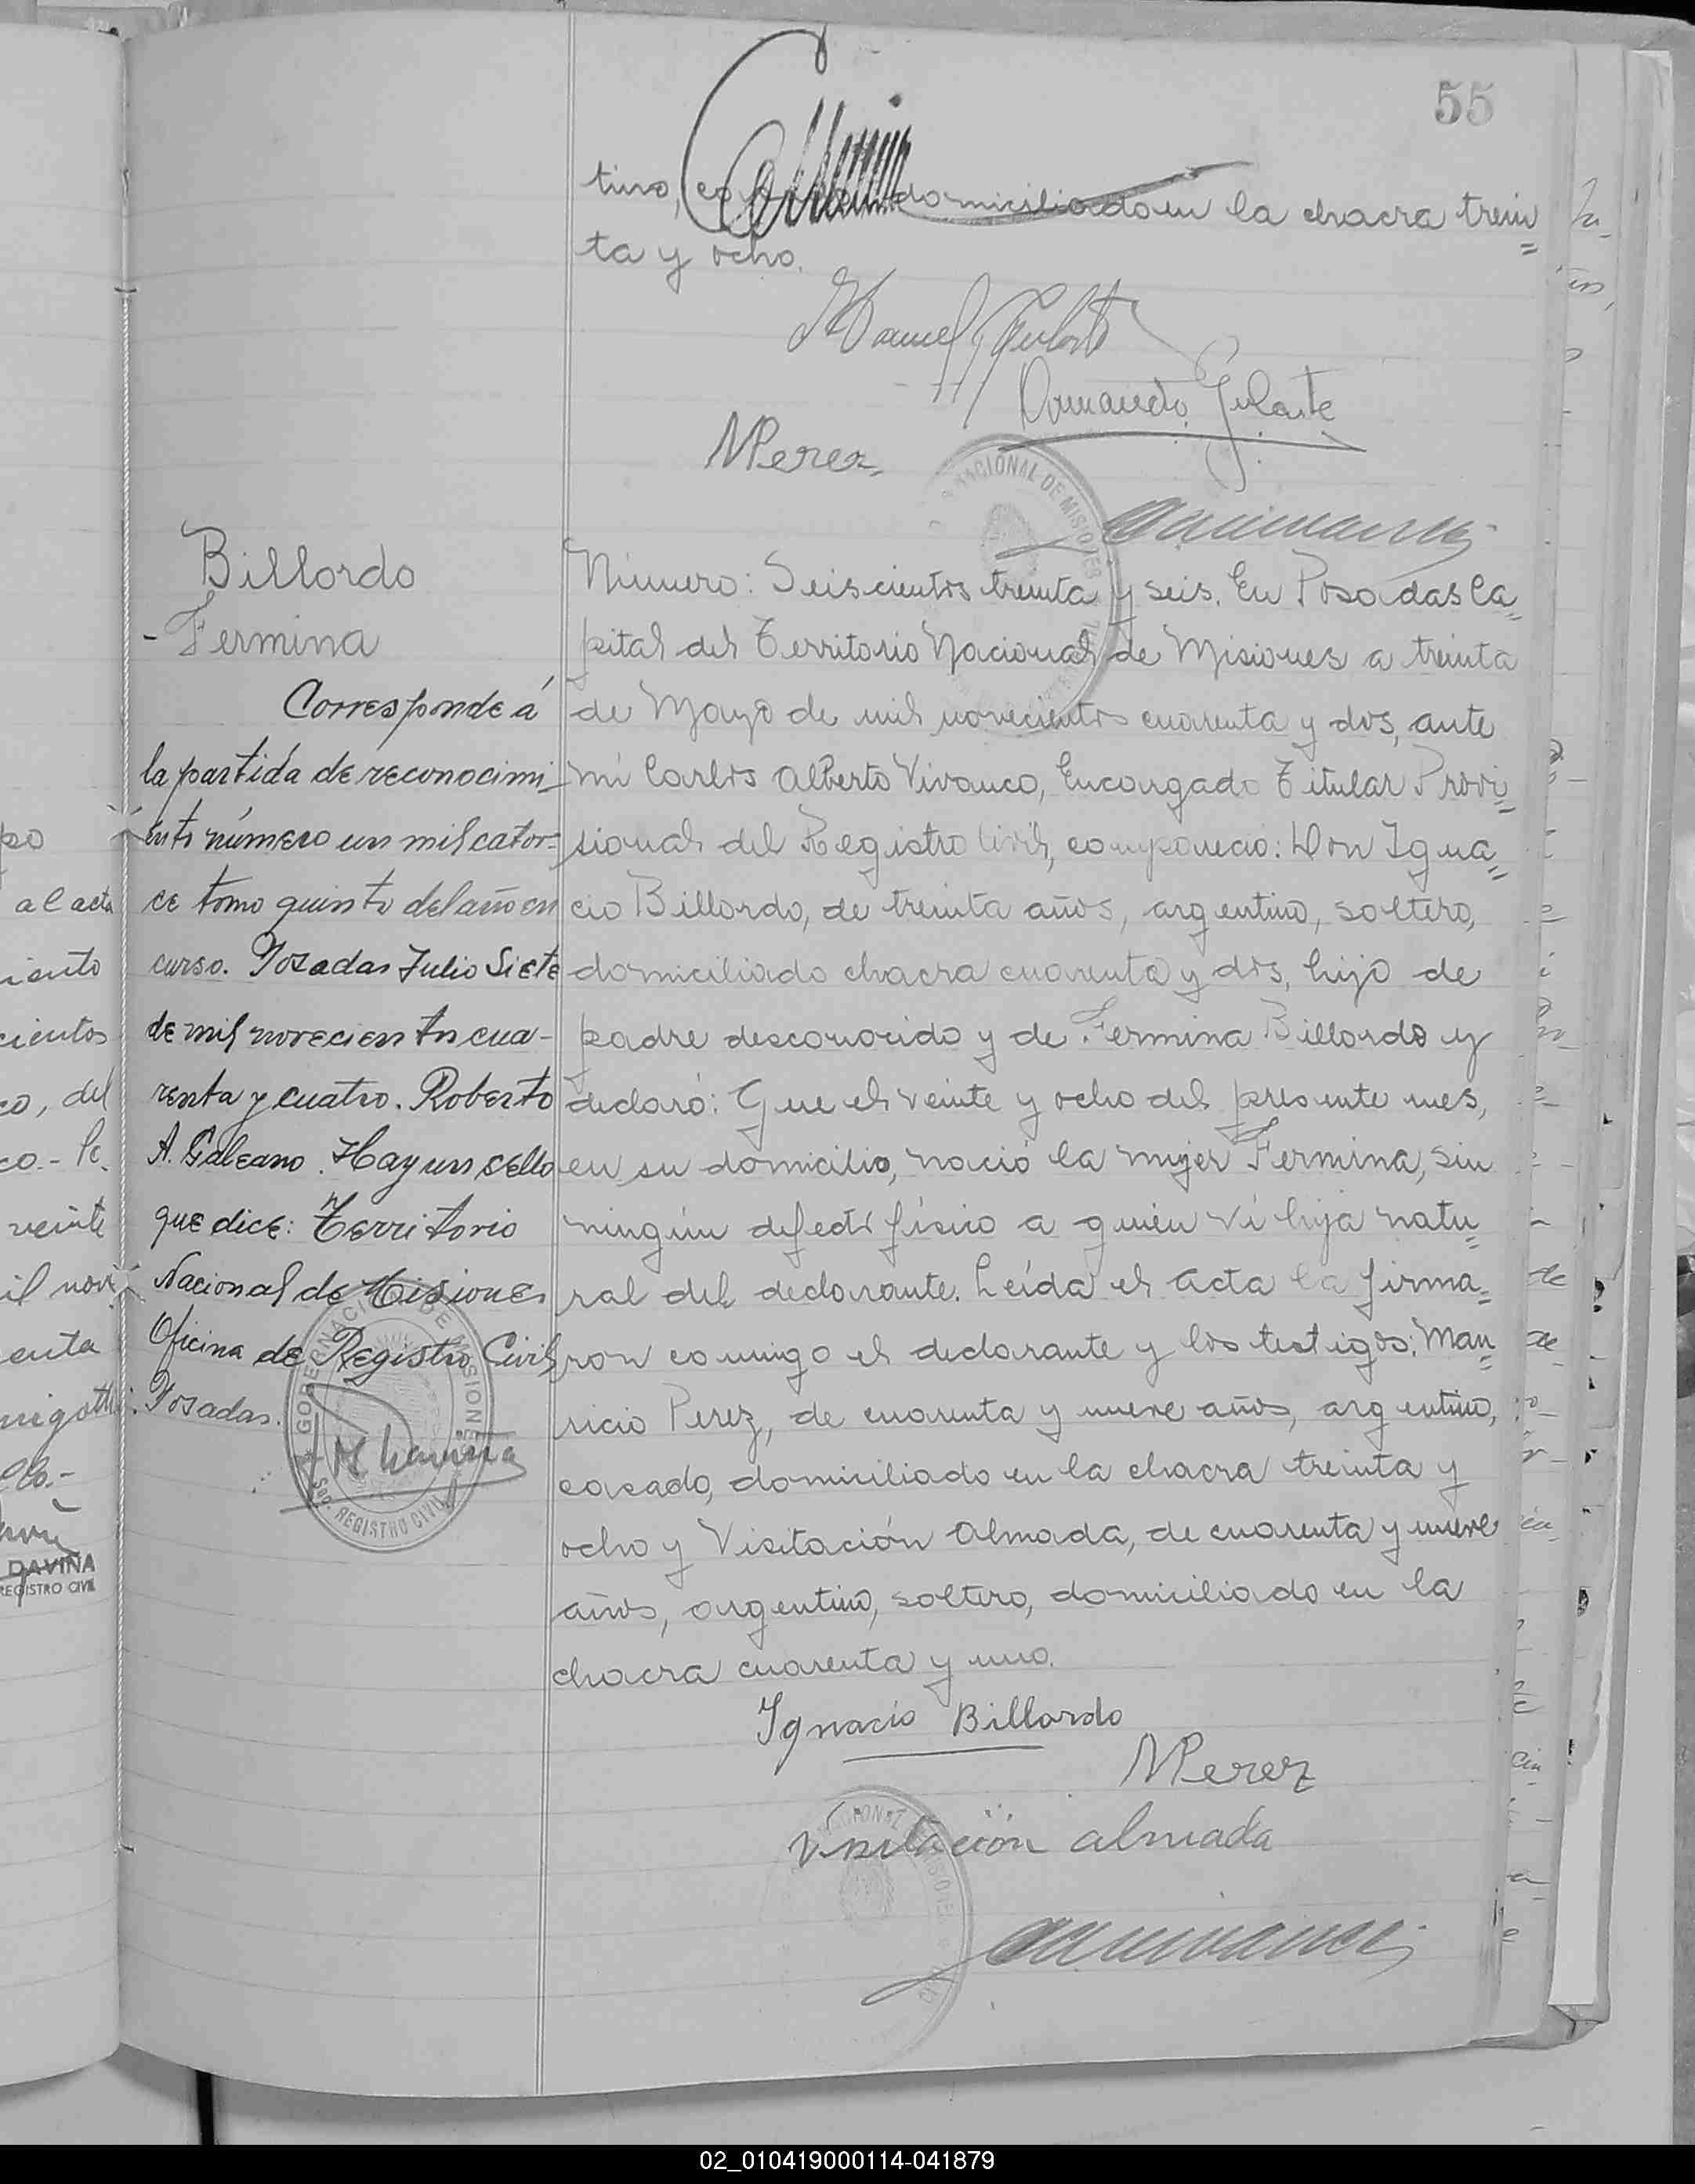 55
tino, domiciliado en la chacra trein=
ta y ocho.
Manuel Gularte
Armando Gularte
MPerez
NACIONAL DE MISIONES
Billordo
-Fermina
Corresponde á
la partida de reconocimi-
ento número un mil cator=
ce tomo quinto del año en
curso. Posadas Julio Siete
de mil novecientos cua-
renta y cuatro. Roberto
A. Galeano. Hay un sello
que dice: Territorio
Nacional de Misiones
Oficina de Registro Civil
Posadas.
GOBERNACION DE MISIONES
REGISTRO CIVIL
Número: Seiscientos treinta y seis. En Posadas Ca=
pital del Territorio Nacional de Misiones a treinta
de Mayo de mil novecientos cuarenta y dos, ante
mí Carlos Alberto Vivanco, Encargado Titular Provi=
sional del Registro Civil, compareció: Don Igna=
cio Billordo, de treinta años, argentino, soltero,
domiciliado chacra cuarenta y dos, hijo de
padre desconocido y de Fermina Billordo y
declaró: Que el veinte y ocho del presente mes,
en su domicilio, nació la mujer Fermina, sin
ningún defecto físico a quien ví hija natu=
ral del declarante. Leída el acta la firma=
ron conmigo el declarante y los testigos: Mau=
ricio Perez, de cuarenta y nueve años, argentino,
casado, domiciliado en la chacra treinta y
ocho y Visitación Almada, de cuarenta y nueve
años, argentino, soltero, domiciliado en la
chacra cuarenta y uno.
Ignacio Billordo
MPerez
Visitación almada
al acta
iento
cientos
co, del
veinte
enta
DAVIÑA
REGISTRO CIVIL
02_010419000114-041879